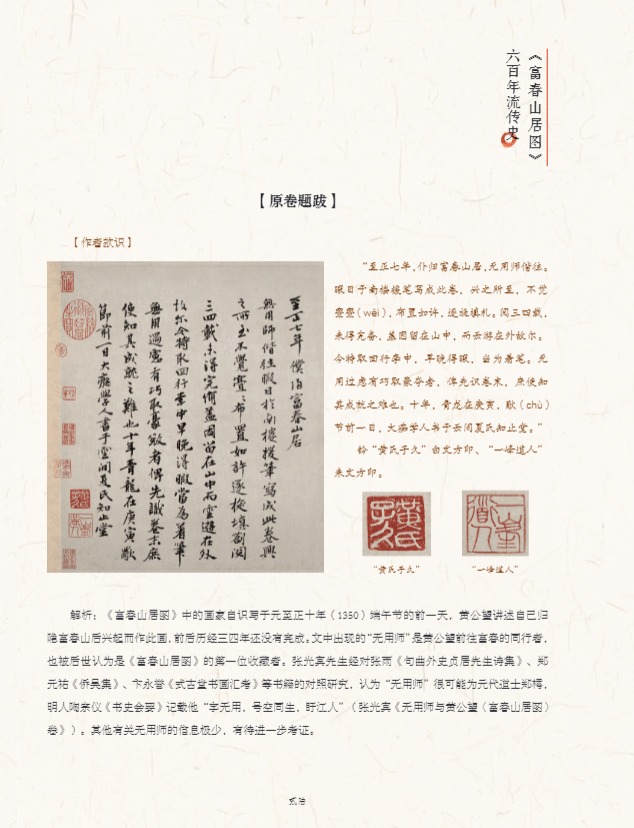 《富春山居图》
六百年流传史
【原卷题跋】
【作者款识】
至正七年僕歸富春山居
無用師偕往暇日於南樓援筆寫成此卷興
之所至不覺亹亹布置如許逐旋填劄閱
三四載未得完備蓋因留在山中而雲遊在外
故爾今特取回行李中早晚得暇當為著筆
無用過慮有巧取豪敓者俾先識卷末庶
使知其成就之難也十年青龍在庚寅歜
節前一日大癡學人書于雲間夏氏知止堂
“至正七年，仆归富春山居，无用师偕往。
暇日于南楼援笔写成此卷，兴之所至，不觉
亹亹（wěi），布置如许，逐旋填札。阅三四载，
未得完备，盖因留在山中，而云游在外故尔。
今特取回行李中，早晚得暇，当为着笔。无
用过虑有巧取豪夺者，俾先识卷末，庶使知
其成就之难也。十年，青龙在庚寅，歜（chù）
节前一日，大痴学人书于云间夏氏知止堂。”
钤“黄氏子久”白文方印、“一峰道人”
朱文方印。
黄氏子久
一峯道人
“黄氏子久”
“一峰道人”
解析：《富春山居图》中的画家自识写于元至正十年（1350）端午节的前一天，黄公望讲述自己归
隐富春山后兴起而作此画，前后历经三四年还没有完成。文中出现的“无用师”是黄公望前往富春的同行者，
也被后世认为是《富春山居图》的第一位收藏者。张光宾先生经对张雨《句曲外史贞居先生诗集》、郑
元祐《侨吴集》、卞永誉《式古堂书画汇考》等书籍的对照研究，认为“无用师”很可能为元代道士郑樗，
明人陶宗仪《书史会要》记载他“字无用，号空同生，盱江人”（张光宾《无用师与黄公望〈富春山居图〉
卷》）。其他有关无用师的信息极少，有待进一步考证。